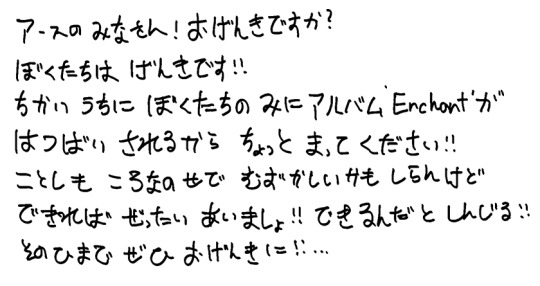 アースの みなさん! おげんきですか?
ぼくたちは げんきです!!
ちかい うちに ぼくたちの みにアルバム 'Enchant'が
はつばい されるから ちょっと まってください!!
ことしも ころなのせで むずかしいかも しらんけど
できれば ぜったい あいましょ!! できるんだと しんじる!!
そのひまで ぜひ おげんきに!!...